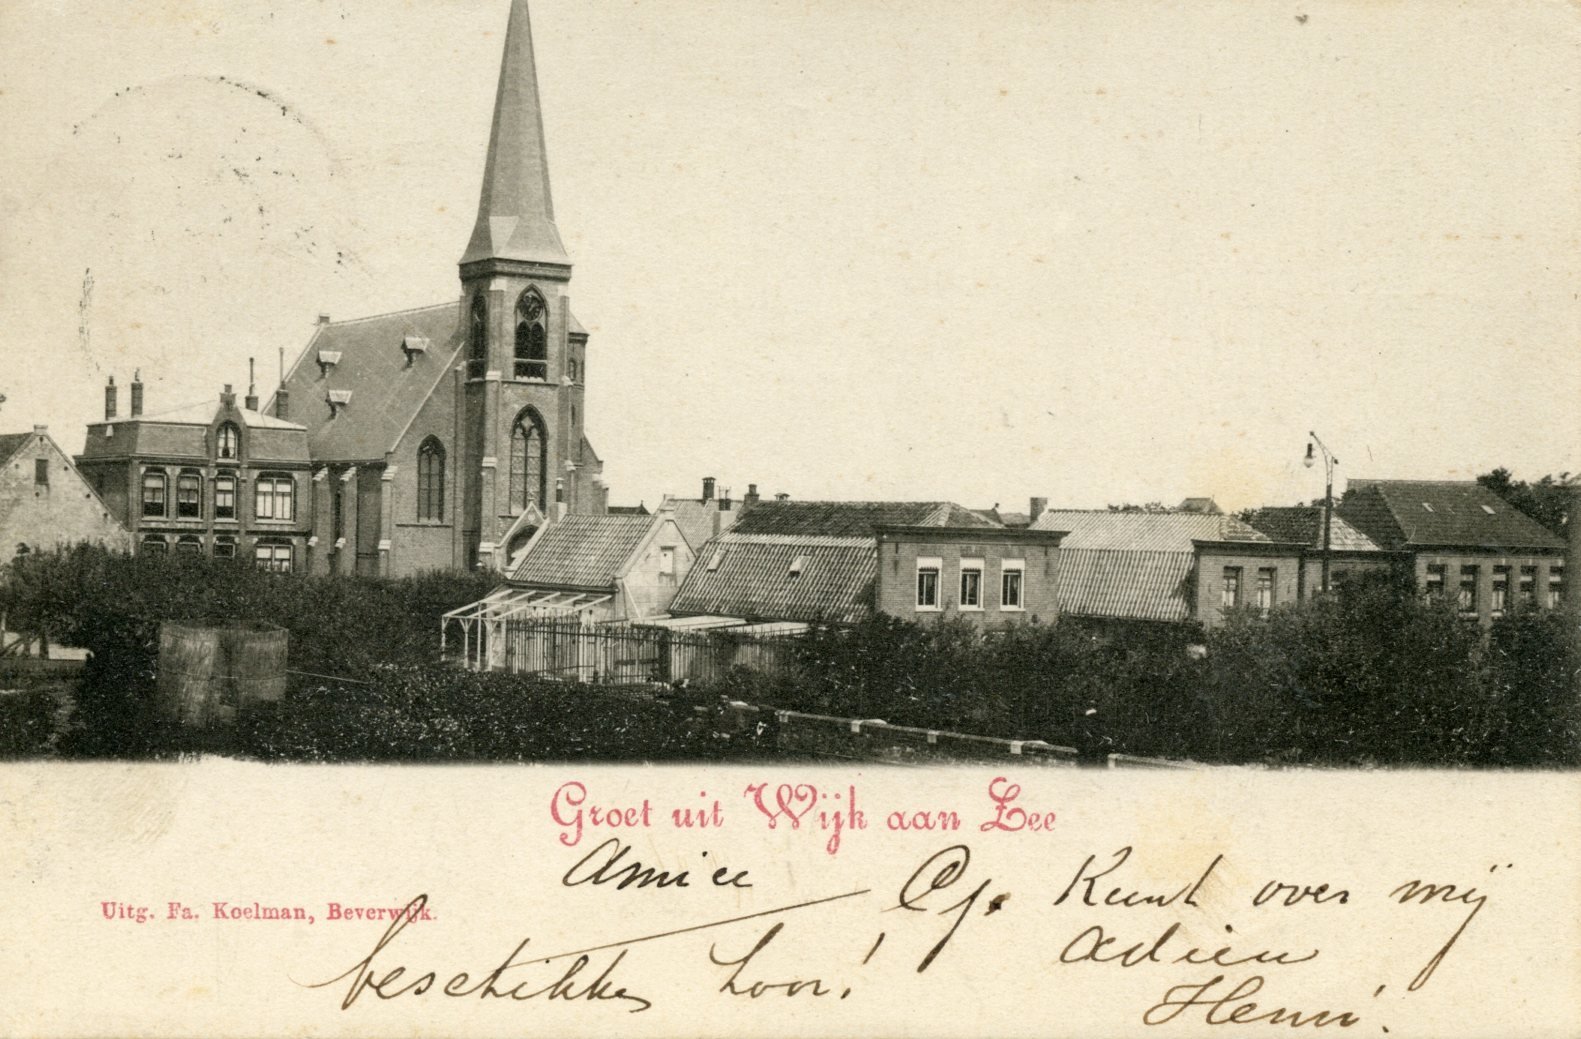 Groet uit Wijk aan Zee
Amice
Uitg. Fa. Koelman, Beverwijk.
Kunt over mij
beschikken hoor!
Adieu
Henri.